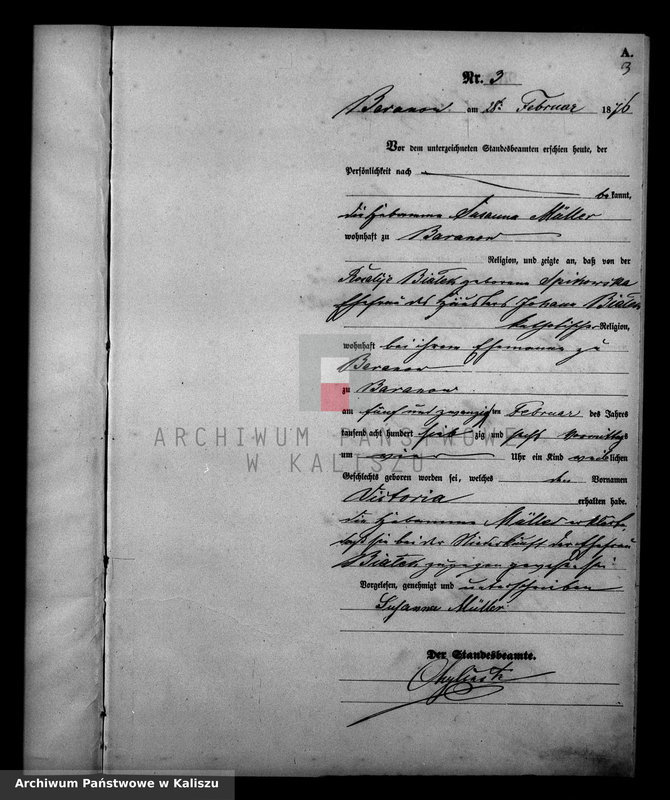 A.
3
Nr. 3
Baranow am 28t Februar 1876
Vor dem unterzeichneten Standesbeamten erschien heute, der
Persönlichkeit nach
be kannt,
die Hebamme Susanna Müller
wohnhaft zu Baranow
Religion, und zeigte an, daß von der
Rosalije Bialek geborene
Ehefrau des Häuslers Johann Bialek
katholischer Religion,
wohnhaft bei ihrem Ehemanne zu
Baranow
zu Baranow
am fünf und zwanzig ten Februar des Jahres
tausend acht hundert sieb zig und sechs Vormittags
um vier Uhr ein Kind weiblichen
Geschlechts geboren worden sei, welches den Vornamen
Victoria erhalten habe.
Die Hebamme Müller erklärte,
daß sie bei der Niederkunft der Ehefrau
Bialek zugegen gewesen sei.
Vorgelesen, genehmigt und unterschrieben
Susanna Müller
Der Standesbeamte.
ARCHIWUM PAŃSTWOWE
W KALISZU
Archiwum Państwowe w Kaliszu